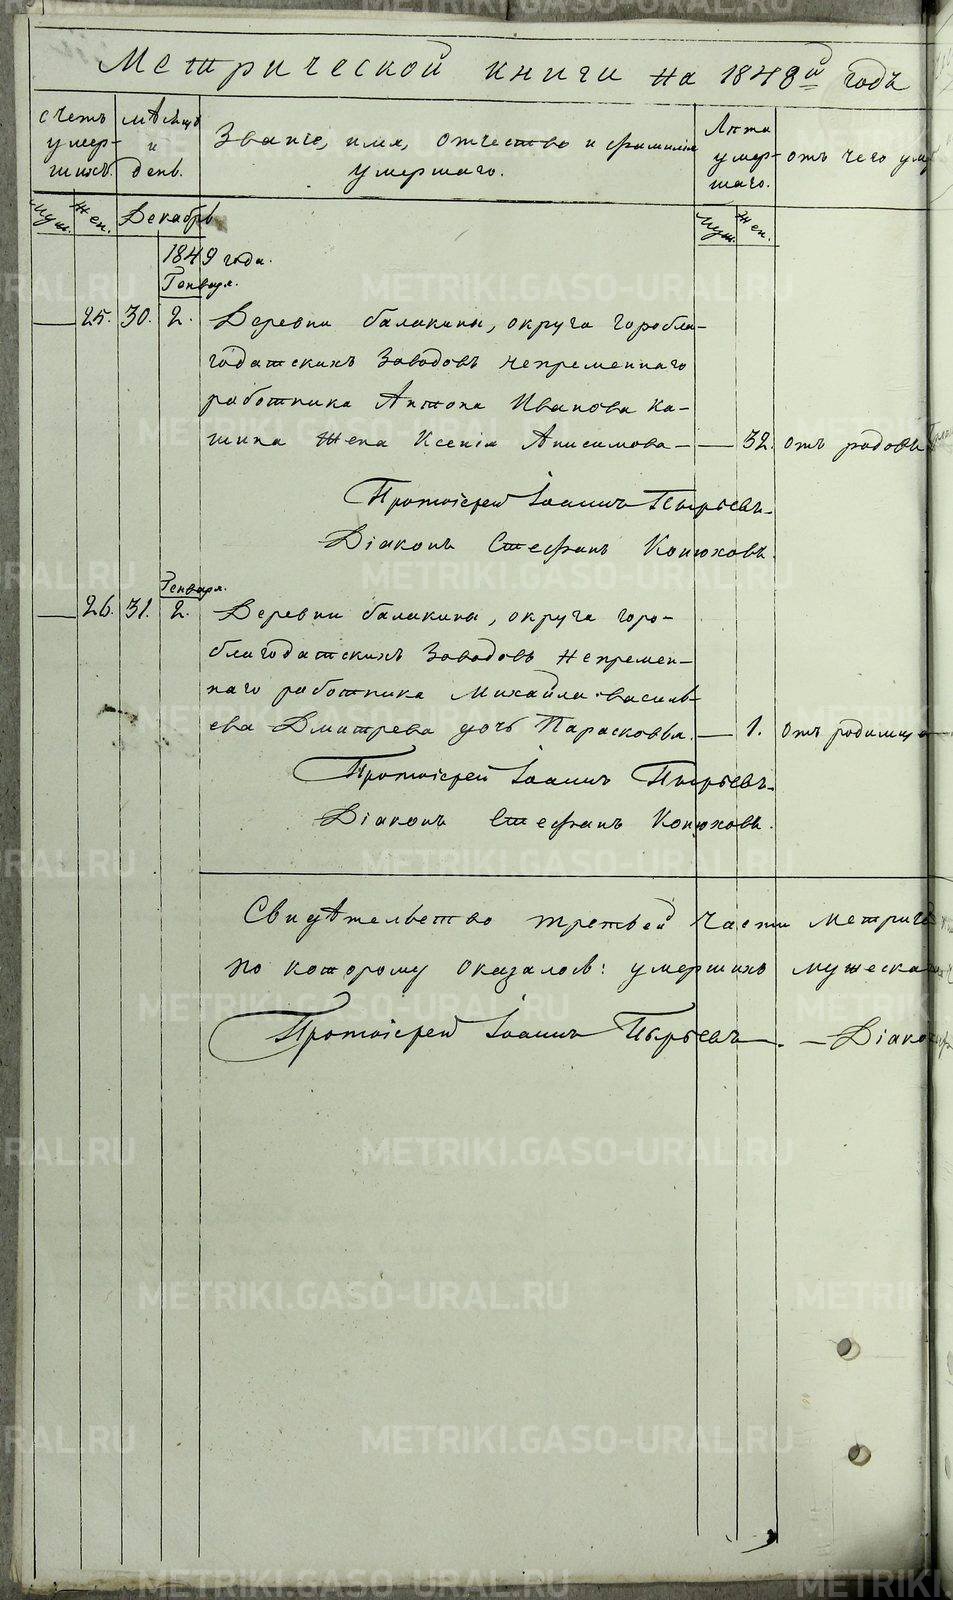 Метрической книги на 1848й годъ
Счетъ умершихъ.
Мѣсяцъ и день.
Званіе, имя, отчество и фамилія умершаго.
Лѣта умершаго.
отъ чего
Муж. Жен. Декабрь Муж. Жен.
1849 года.
Генваря.
25. 30. 2. Деревни балакины, округа горобла-
годатскихъ Заводовъ непременнаго
работника Антона Иванова Ка-
шина жена Ксенія Анисимова — 32. отъ родовъ
Протоіерей Іоаннъ Пырьевъ.
Діаконъ Стефанъ Конюховъ.
Генваря.
26. 31. 2. Деревни балакины, округа горо-
благодатскихъ Заводовъ непремен-
наго работника Михайла василь-
ева Дмитрева дочь Парасковья. — 1. отъ родимца
Протоіерей Іоаннъ Пырьевъ.
Діаконъ Стефанъ Конюховъ.
Свидѣтельство третьей части
по которому оказалось: умершихъ мужеска
Протоіерей Іоаннъ Пырьевъ. —
METRIKI.GASO-URAL.RU